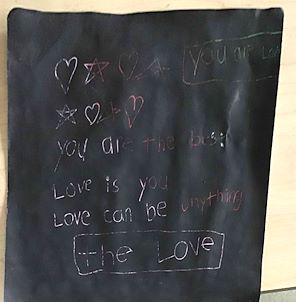 you are Love
you are the best
Love is you
Love can be anything
The Love